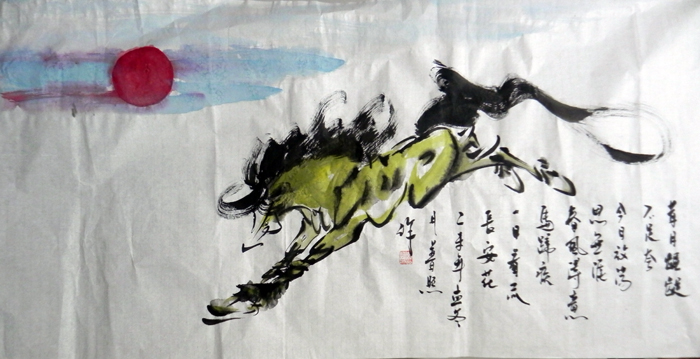 昔日龌龊
不足夸
今日放荡
思無涯
春風得意
馬蹄疾
一日看尽
長安花
年孟冬
月普照